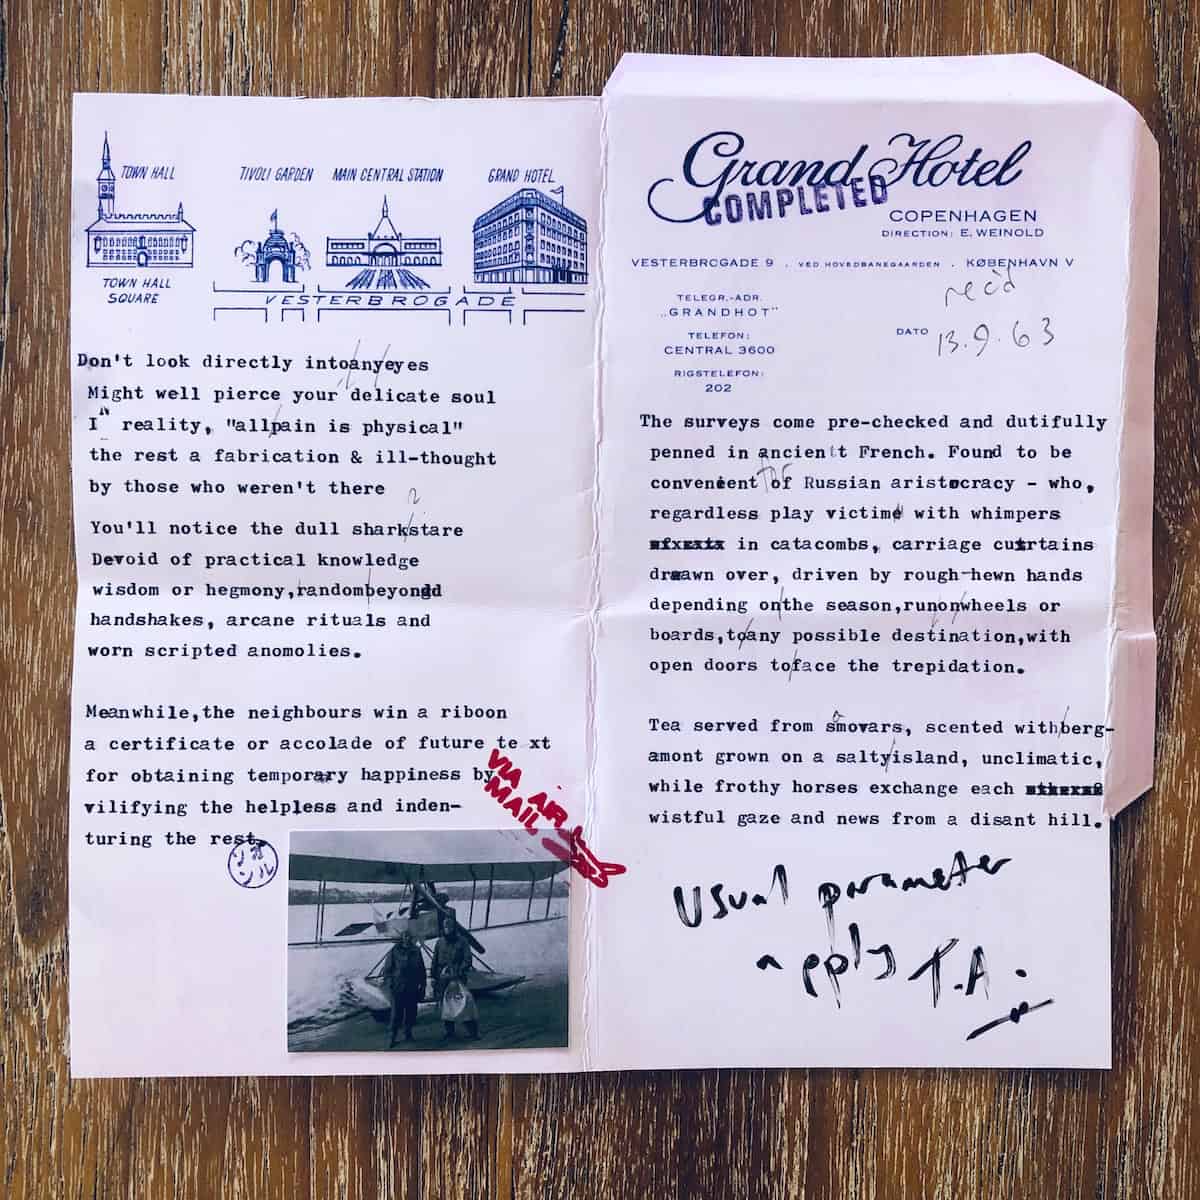 TOWN HALL
TIVOLI GARDEN
MAIN CENTRAL STATION
GRAND HOTEL
TOWN HALL
SQUARE
VESTERBROGADE
Don't look directly intoanyeyes
Might well pierce your delicate soul
I reality, "allpain is physical"
n
the rest a fabrication & ill-thought
by those who weren't there
?
You'll notice the dull sharkstare
Devoid of practical knowledge
wisdom or hegmony,randombeyond
handshakes, arcane rituals and
worn scripted anomolies.
Meanwhile,the neighbours win a riboon
a certificate or accolade of future te xt
for obtaining temporary happiness by
vilifying the helpless and inden-
turing the rest.
VIA AIR
MAIL
Grand Hotel
COMPLETED
COPENHAGEN
DIRECTION: E. WEINOLD
VESTERBROGADE 9 . VED HOVEDBANEGAARDEN . KØBENHAVN V
rec'd
TELEGR.-ADR.
„GRANDHOT"
TELEFON:
CENTRAL 3600
RIGSTELEFON:
202
DATO 13.9.63
The surveys come pre-checked and dutifully
penned in ancient French. Found to be
convenient of Russian aristocracy - who,
regardless play victim with whimpers
in catacombs, carriage curtains
drawn over, driven by rough-hewn hands
depending onthe season,runonwheels or
boards,toany possible destination,with
open doors toface the trepidation.
Tea served from smovars, scented withberg-
amont grown on a saltyisland, unclimatic,
while frothy horses exchange each
wistful gaze and news from a disant hill.
Usual parameter
apply T.A.